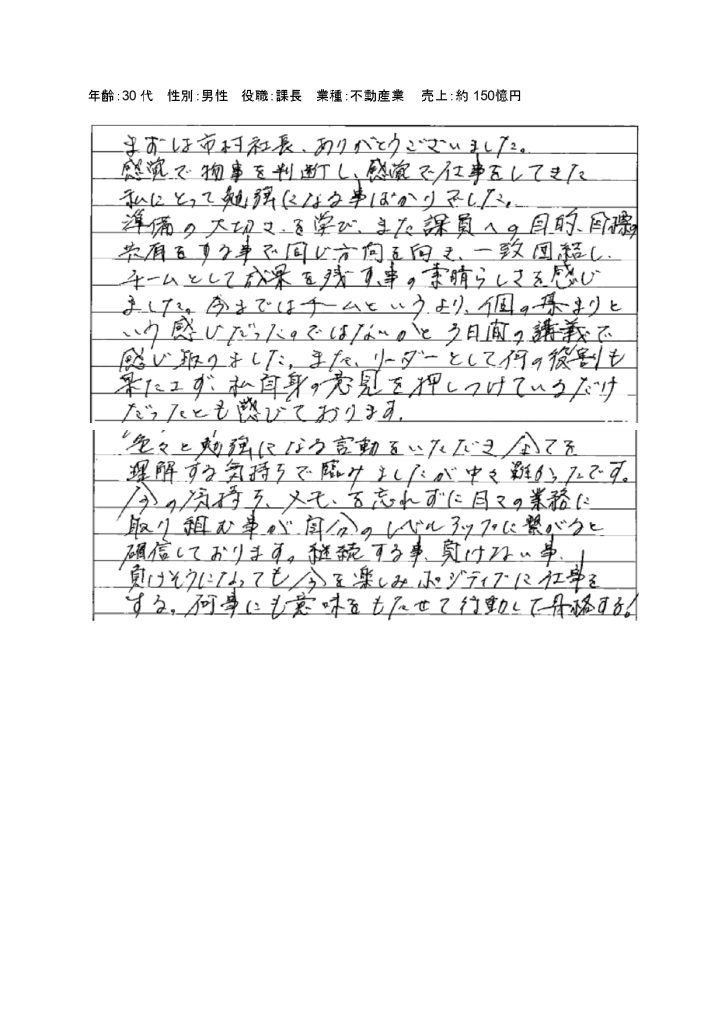 年齢：30代　性別：男性　役職：課長　業種：不動産業　売上：約150億円
まずは市村社長、ありがとうございました。
感覚で物事を判断し、感覚で仕事をしてきた
私にとって勉強になる事ばかりでした。
準備の大切さを学び、また課員への目的、目標の
共有をする事で同じ方向を向き、一致団結し、
チームとして成果を残す事の素晴らしさを感じ
ました。今まではチームというより、個の集まりと
いう感じだったのではないかと3日間の講義で
感じ取りました。また、リーダーとして何の役割も
果たせず、私自身の意見を押しつけているだけ
だったとも感じております。
色々と勉強になる言動をいただき全てを
理解する気持ちで臨みましたが中々難かったです。
今の気持ち、メモ、を忘れずに日々の業務に
取り組む事が自分のレベルアップに繋がると
確信しております。継続する事、負けない事、
負けそうになっても今を楽しみポジティブに仕事を
する。何事にも意味をもたせて行動して昇格する！